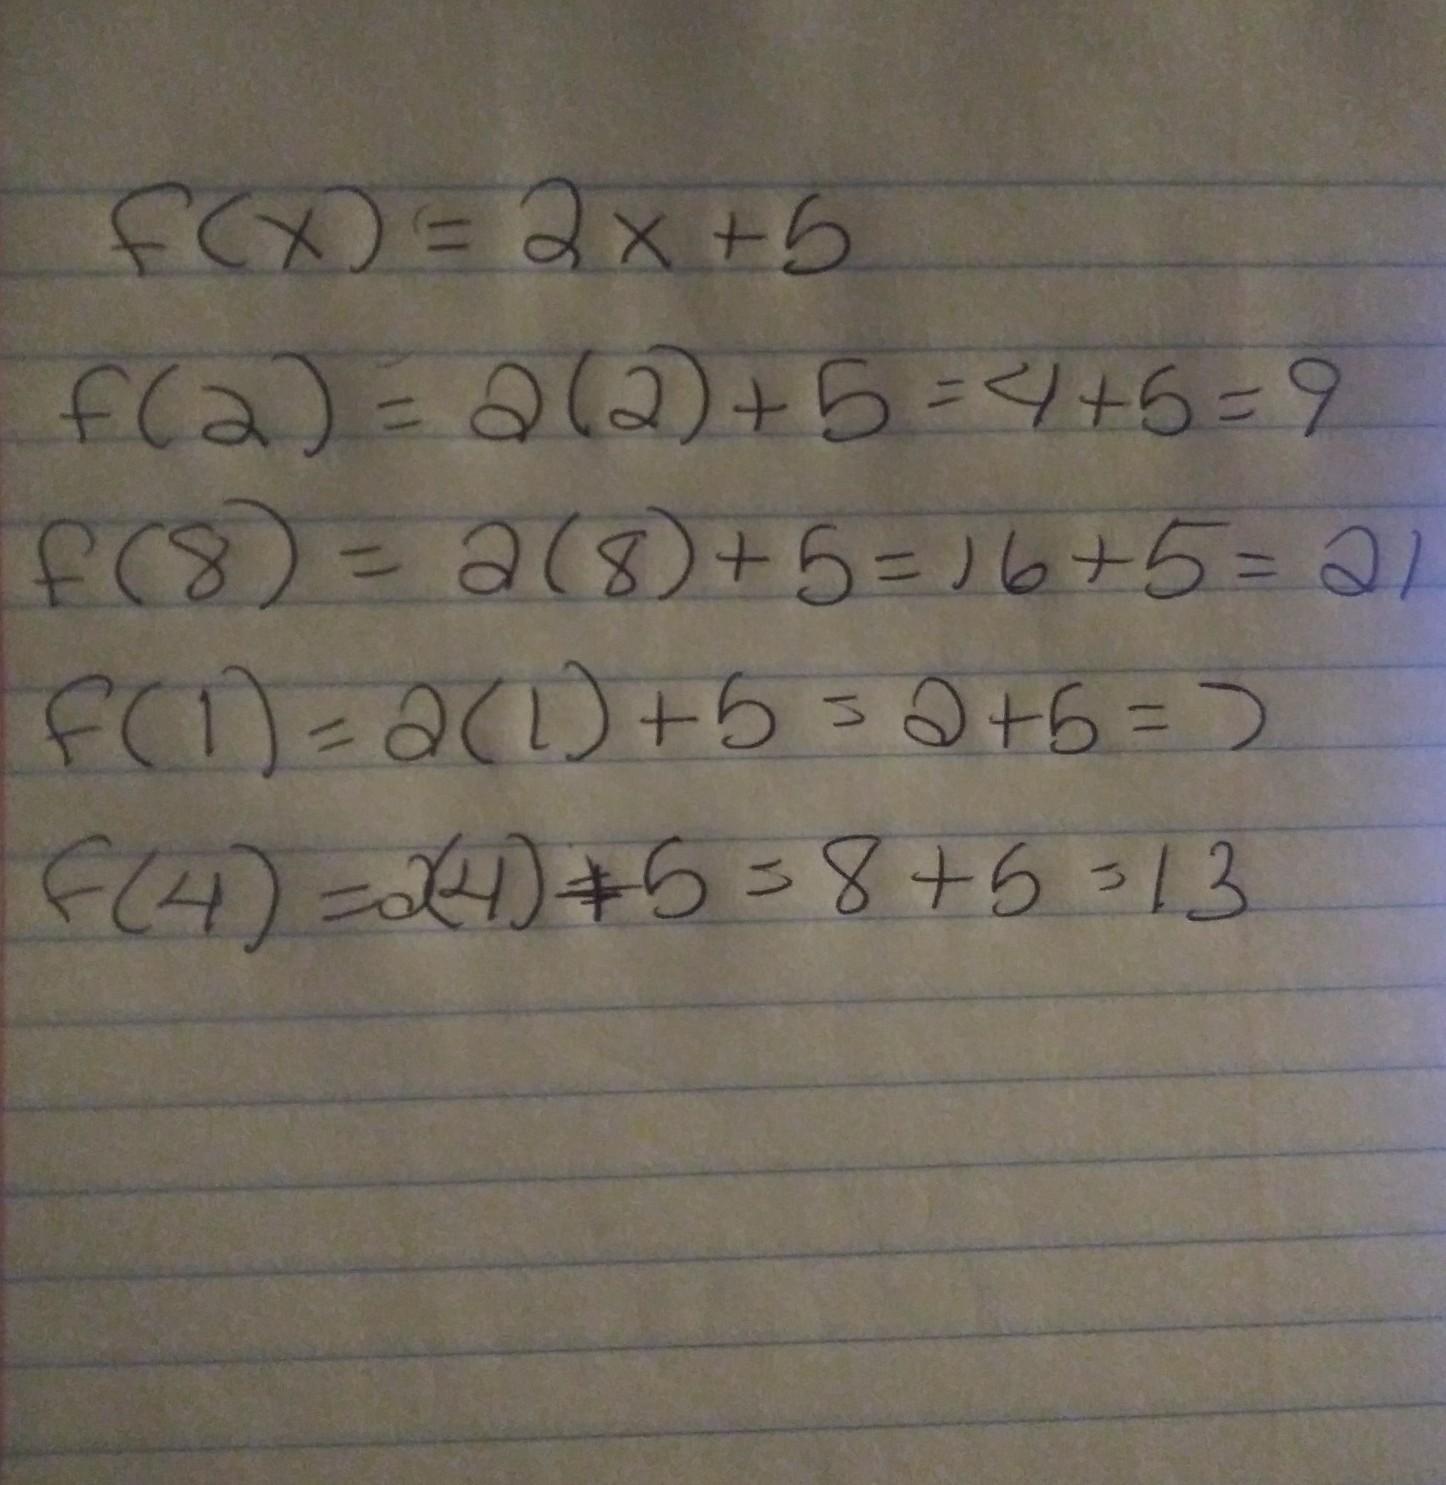 f(x) = 2x + 5
f(2) = 2(2) + 5 = 4 + 5 = 9
f(8) = 2(8) + 5 = 16 + 5 = 21
f(1) = 2(1) + 5 = 2 + 5 = 7
f(4) = 2(4) + 5 = 8 + 5 = 13